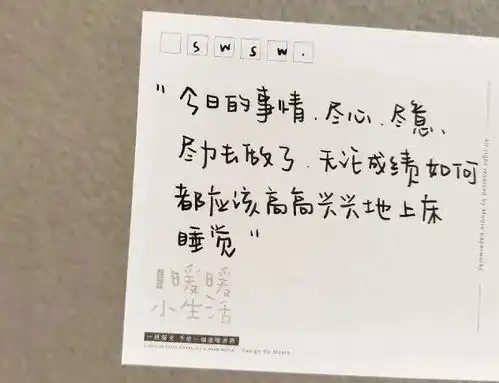 s w s w .
"今日的事情、尽心、尽意、
尽力去做了、无论成绩如何
都应该高高兴兴地上床
睡觉"
暖暖
小生活
All right reserved by Moore paperworks
Design By Moore